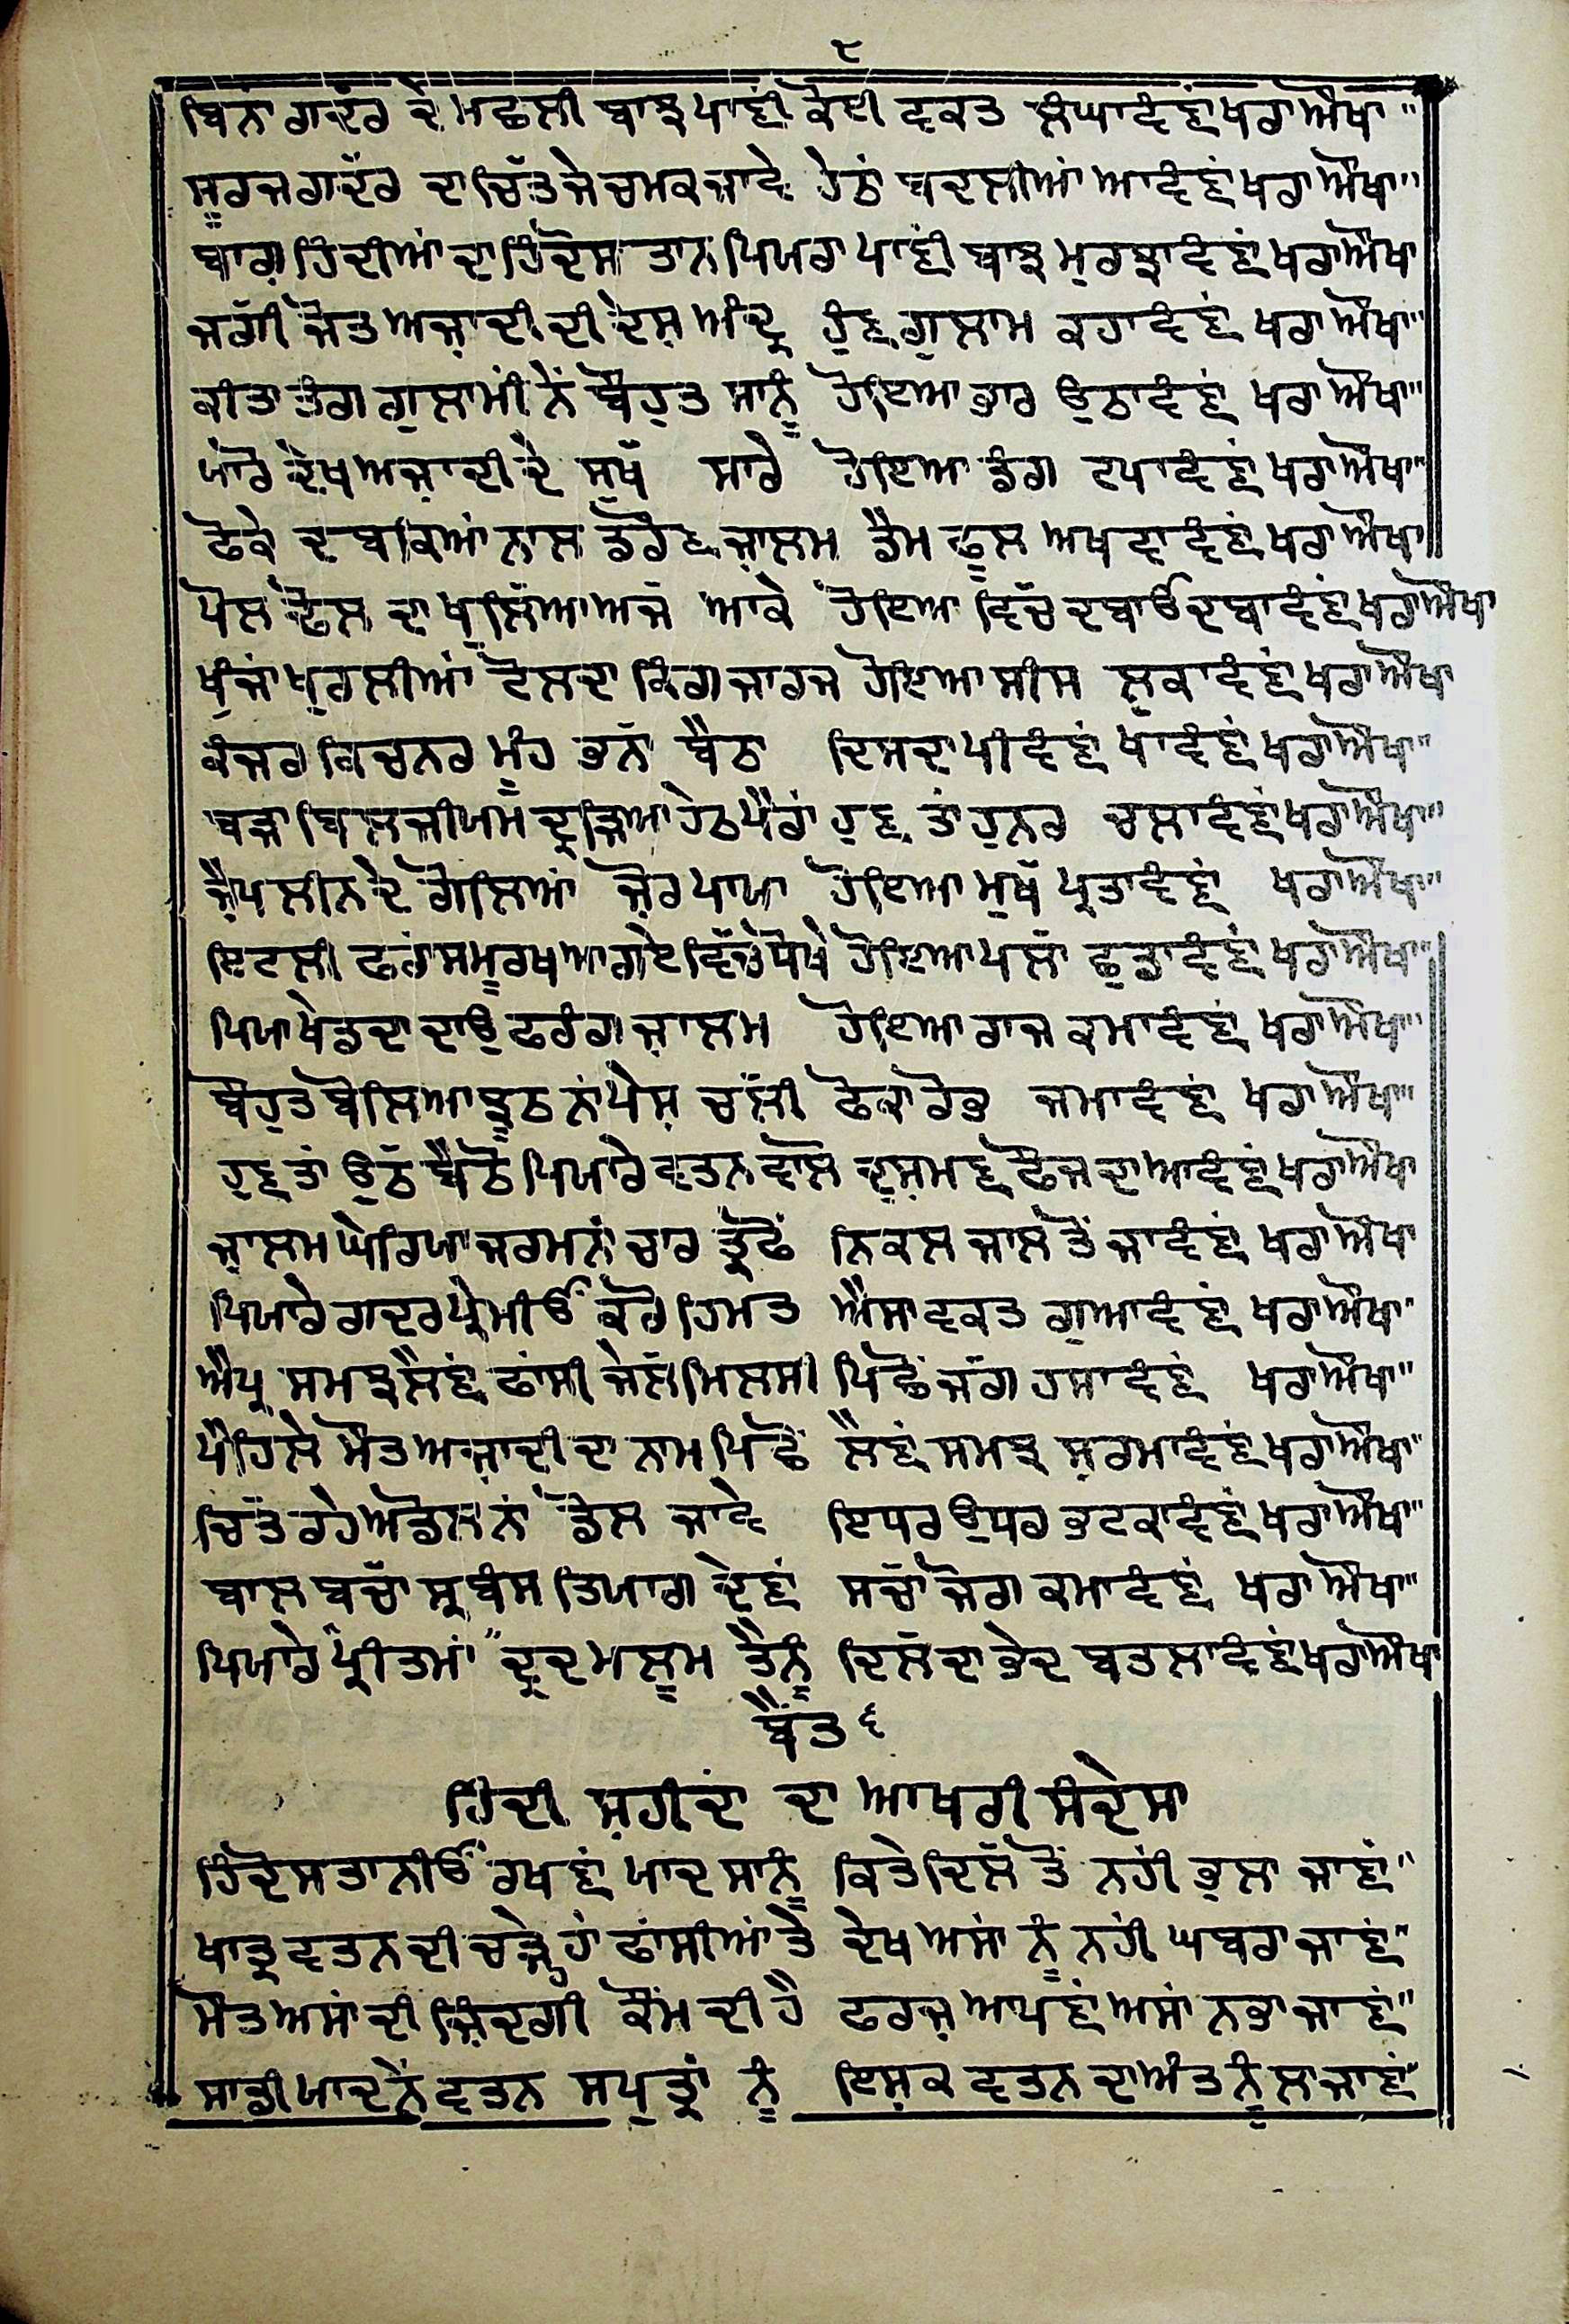 ੮
ਬਿਨਾਂ ਗਦੱਰ ਦੇ ਮਛਲੀ ਬਾਝ ਪਾਣੀਂ ਕੋਈ ਵਕਤ ਲੰਘਾਵੰਣਾਂ ਖਰਾ ਔਖਾ"
ਸੂਰਜ ਗਦੱਰ ਦਾ ਚਿੱਤ ਜੇ ਚਮਕ ਜਾਵੇ ਹੇਠਾਂ ਬਦਲੀਆਂ ਆਵੰਣਾਂ ਖਰਾ ਔਖਾ"
ਬਾਗ਼ ਹਿੰਦੀਆਂ ਦਾ ਹਿੰਦੋਸਤਾਨ ਪਿਯਰਾ ਪਾਣੀਂ ਬਾਝ ਮੁਰਝਾਵੰਣਾਂ ਖਰਾ ਔਖਾ
ਜਗੀ ਜੋਤ ਅਜ਼ਾਦੀ ਦੀ ਦੇਸ਼ ਅੰਦ੍ਰ ਹੁੰਣ ਗੁਲਾਮ ਕਹਾਵੰਣਾਂ ਖਰਾ ਔਖਾ"
ਕੀਤਾ ਤੰਗ ਗੁਲਾਮੀਂ ਨੇਂ ਬੌਹੁਤ ਸਾਨੂੰ ਹੋਇਆ ਭਾਰ ਉਠਾਵੰਣਾਂ ਖਰਾ ਔਖਾ"
ਯਾਰੋ ਦੇਖ ਅਜ਼ਾਦੀ ਦੇ ਸੁਖੱ ਸਾਰੇ ਹੋਇਆ ਡੰਗ ਟਪਾਵੰਣਾਂ ਖਰਾ ਔਖਾ"
ਫੋਕੇ ਦਬਕਿਆਂ ਨਾਲ ਡਰੌਣ ਜ਼ਾਲਮ ਡੈਮ ਫੂਲ ਅਖਵਾਵੰਣਾਂ ਖਰਾ ਔਖਾ
ਪੋਲ ਢੋਲ ਦਾ ਖੁਲਿੱਆ ਅਜੱ ਆਕੇ ਹੋਇਆ ਵਿਚੱ ਦਬਾਓ ਦਬਾਵੰਣਾਂ ਖਰਾ ਔਖਾ
ਖੂੰਜਾਂ ਖੁਰਲੀਆਂ ਟੋਲਦਾ ਕਿੰਗ ਜਾਰਜ ਹੋਇਆ ਸੀਸ ਲੁਕਾਵੰਣਾਂ ਖਰਾ ਔਖਾ
ਕੰਜਰ ਕਿਚਨਰ ਮੂੰਹ ਭਨਾੱ ਬੈਠਾ ਦਿਸਦਾ ਪੀਵੰਣਾਂ ਖਾਵੰਣਾਂ ਖਰਾ ਔਖਾ"
ਬੜਾ ਬਿਲਜੀਯਮ ਦ੍ਰੜਿਆ ਹੇਠ ਪੈਰਾਂ ਹੁਣ ਤਾਂ ਹੁਨਰ ਚਲਾਵੰਣਾਂ ਖਰਾ ਔਖਾ"
ਜ਼ੈਪਲੀਨ ਦੇ ਗੋਲਿਆਂ ਜ਼ੋਰ ਪਾਯਾ ਹੋਇਆ ਮੁਖੱ ਪ੍ਰਤਾਵੰਣਾਂ ਖਰਾ ਔਖਾ"
ਇਟਲੀ ਫਰਾਂਸ ਮੂਰਖ ਆਗਏ ਵਿੱਚੇ ਧੋਖੇ ਹੋਇਆ ਪਲਾੱ ਛੁੜਾਵੰਣਾਂ ਖਰਾ ਔਖਾ"
ਪਿਯਾ ਖੇਡਦਾ ਦਾਉ ਫਰੰਗ ਜ਼ਾਲਮ ਹੋਇਆ ਰਾਜ ਕਮਾਵੰਣਾਂ ਖਰਾ ਔਖਾ"
ਬੌਹੁਤ ਬੋਲਿਆ ਝੂਠ ਨਾਂ ਪੇਸ਼ ਚਲੀੱ ਫੋਕਾ ਰੋਭ ਜਮਾਵੰਣਾਂ ਖਰਾ ਔਖਾ"
ਹੁਣ ਤਾਂ ਉਠੱ ਬੈਠੋ ਪਿਯਾਰੇ ਵਤਨ ਵਾਲੋ ਦੁਸ਼ਮਣ ਫੌਜ ਦਾ ਆਵੰਣਾਂ ਖਰਾ ਔਖਾ
ਜ਼ਾਲਮ ਘੇਰਿਯਾ ਜਰਮਨਾਂ ਚਾਰ ਤ੍ਰਫੋਂ ਨਿਕਲ ਜਾਲ ਤੋਂ ਜਾਵੰਣਾਂ ਖਰਾ ਔਖਾ
ਪਿਯਾਰੇ ਗਦਰ ਪ੍ਰੇਮੀਓਂ ਕਰੋ ਹਿਮਤ ਐਸਾ ਵਕਤ ਗੁਆਵੰਣਾਂ ਖਰਾ ਔਖਾ"
ਐਪ੍ਰ ਸਮਝ ਲੈਣਾਂ ਫਾਂਸੀ ਜੇਲੱ ਮਿਲਸੀ ਪਿਛੋਂ ਜੱਗ ਹਸਾਵੰਣਾਂ ਖਰਾ ਔਖਾ"
ਪੈਹਿਲੇ ਮੌਤ ਅਜ਼ਾਦੀ ਦਾ ਨਾਮ ਪਿਛੋਂ ਲੈਣਾਂ ਸਮਝ ਸ਼ਰਮਾਵੰਣਾਂ ਖਰਾ ਔਖਾ"
ਚਿਤੱ ਰਹੇ ਅਡੋਲ ਨਾਂ ਡੋਲ ਜਾਵੇ ਇਧਰ ਉਧਰ ਭਟਕਾਵੰਣਾਂ ਖਰਾ ਔਖਾ"
ਬਾਲ ਬਚਾੱ ਸ੍ਰਬੰਸ ਤਿਯਾਗ ਦੇਣਾਂ ਸਚਾੱ ਜੋਗ ਕਮਾਵੰਣਾਂ ਖਰਾ ਔਖਾ"
ਪਿਯਾਰੇ "ਪ੍ਰੀਤਮਾਂ" ਦ੍ਰਦ ਮਲੂਮ ਤੈਨੂੰ ਦਿਲੱ ਦਾ ਭੇਦ ਬਤਲਾਵੰਣਾਂ ਖਰਾ ਔਖਾ
ਬੈਂਤ ੬
ਹਿੰਦੀ ਸ਼ਹੀਦਾਂ ਦਾ ਆਖਰੀ ਸੰਦੇਸਾ
ਹਿੰਦੋਸਤਾਨੀਓਂ ਰਖਣਾਂ ਯਾਦ ਸਾਨੂੰ ਕਿਤੇ ਦਿਲੱ ਤੋਂ ਨਹੀਂ ਭੁਲਾ ਜਾਣਾਂ"
ਖਾਤ੍ਰ ਵਤਨ ਦੀ ਚੜੇ ਹਾਂ ਫਾਂਸੀਆਂ ਤੇ ਦੇਖ ਅਸਾਂ ਨੂੰ ਨਹੀਂ ਘਬਰਾ ਜਾਣਾਂ"
ਮੌਤ ਅਸਾਂ ਦੀ ਜ਼ਿੰਦਗੀ ਕੌਮ ਦੀ ਹੈ ਫਰਜ਼ ਆਪਣਾਂ ਅਸਾਂ ਨਭਾ ਜਾਣਾਂ"
ਸਾਡੀ ਯਾਦ ਨੇਂ ਵਤਨ ਸਪੁਤ੍ਰਾਂ ਨੂੰ ਇਸ਼ਕ ਵਤਨ ਦਾ ਅੰਤ ਨੂੰ ਲਾ ਜਾਣਾਂ"